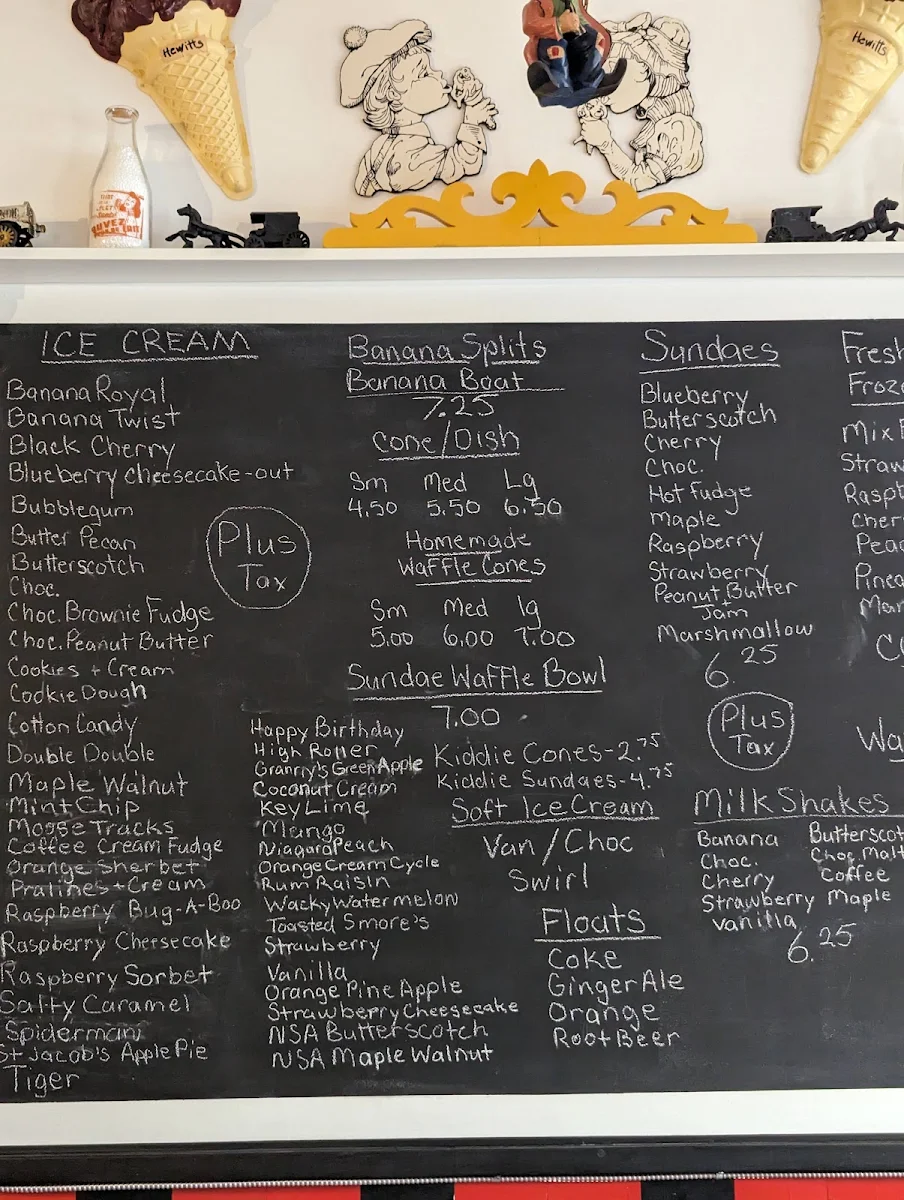 Hewitts
Hewitts
ICE CREAM
Banana Royal
Banana Twist
Black Cherry
Blueberry cheesecake-out
Bubblegum
Butter Pecan
Butterscotch
Choc.
Choc. Brownie Fudge
Choc. Peanut Butter
Cookies + Cream
Cookie Dough
Cotton Candy
Double Double
Maple Walnut
Mint Chip
Moose Tracks
Coffee Cream Fudge
Orange Sherbet
Pralines + Cream
Raspberry Bug-A-Boo
Raspberry Cheesecake
Raspberry Sorbet
Salty Caramel
Spiderman
St Jacob's Apple Pie
Tiger
Plus
Tax
Happy Birthday
High Roller
Granny's Green Apple
Coconut Cream
Key Lime
Mango
Niagara Peach
Orange Cream Cycle
Rum Raisin
Wacky Watermelon
Toasted Smore's
Strawberry
Vanilla
Orange Pine Apple
Strawberry Cheesecake
NSA Butterscotch
NSA Maple Walnut
Banana Splits
Banana Boat
7.25
Cone/Dish
Sm Med Lg
4.50 5.50 6.50
Homemade
Waffle Cones
Sm Med lg
5.00 6.00 7.00
Sundae Waffle Bowl
7.00
Kiddie Cones-2.75
Kiddie Sundaes-4.75
Soft Ice Cream
Van/Choc
Swirl
Floats
Coke
Ginger Ale
Orange
Root Beer
Sundaes
Blueberry
Butterscotch
Cherry
Choc.
Hot fudge
Maple
Raspberry
Strawberry
Peanut Butter
Jam
Marshmallow
6.25
Plus
Tax
Milk Shakes
Banana Butterscot
Choc. Choc Malt
Cherry Coffee
Strawberry Maple
Vanilla
6.25
Fresh
Froze
Mix
Straw
Raspb
Cher
Peac
Pinea
Man
Wa